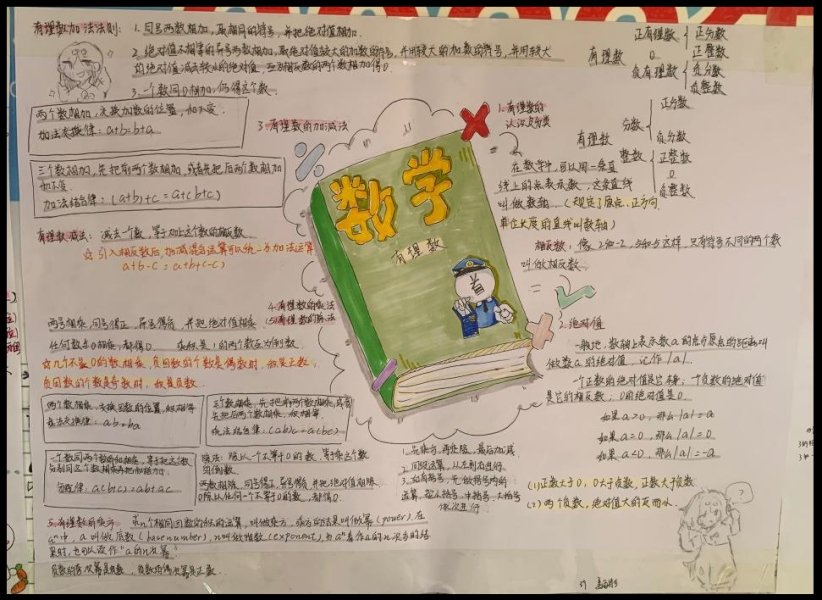 有理数加法法则: 1. 同号两数相加,取相同的符号,并把绝对值相加.
2. 绝对值不相等的异号两数相加,取绝对值较大的加数的符号,并用较大
的绝对值减去较小的绝对值,互为相反数的两个数相加得0.
3. 一个数同0相加,仍得这个数.
两个数相加,交换加数的位置,和不变.
加法交换律: a+b=b+a
三个数相加,先把前两个数相加,或者先把后两个数相加
和不变.
加法结合律: (a+b)+c=a+(b+c)
有理数减法: 减去一个数,等于加上这个数的相反数.
☆ 引入相反数后,加减混合运算可以统一为加法运算
a+b-c=a+b+(-c)
3. 有理数的加减法
1. 有理数的
认识与分类
有理数
正有理数
正分数
正整数
0
负有理数
负分数
负整数
有理数
分数
正分数
负分数
整数
正整数
0
负整数
在数学中,可以用一条直
线上的点表示数,这条直线
叫做数轴.(规定了原点,正方向,
单位长度的直线叫数轴)
相反数: 像2和-2,5和-5这样,只有符号不同的两个数
叫做相反数.
数学
有理数
首
2. 绝对值
一般地,数轴上表示数a的点与原点的距离叫
做数a的绝对值,记作|a|
一个正数的绝对值是它本身,一个负数的绝对值
是它的相反数;0的绝对值是0.
如果a>0,那么|a|=a
如果a=0,那么|a|=0
如果a<0,那么|a|=-a
(1) 正数大于0,0大于负数,正数大于负数.
(2) 两个负数,绝对值大的反而小.
?
4. 有理数的乘法
有理数的除法
两数相乘,同号得正,异号得负,并把绝对值相乘
任何数与0相乘,都得0. 乘积是1的两个数互为倒数.
☆几个不是0的数相乘,负因数的个数是偶数时,积是正数;
负因数的个数是奇数时,积是负数.
两个数相乘,交换因数的位置,积相等
乘法交换律: ab=ba
三个数相乘,先把前两个数相乘,或者
先把后两个数相乘,积相等.
乘法结合律: (ab)c=a(bc)
一个数同两个数的和相乘,等于把这个数
分别同这两个数相乘,再把积相加.
分配律: a(b+c)=ab+ac
除法: 除以一个不等于0的数,等于乘这个数
的倒数.
两数相除,同号得正,异号得负,并把绝对值相除
0除以任何一个不等于0的数,都得0.
1. 先乘方,再乘除,最后加减
2. 同级运算,从左到右进行.
3. 如有括号,先做括号内的
运算,按小括号,中括号,大括号
依次进行.
5. 有理数的乘方: 求n个相同因数的积的运算,叫做乘方,乘方的结果叫做幂(power).在
aⁿ中,a叫做底数(base number),n叫做指数(exponent),当aⁿ看作a的n次方的结
果时,也可以读作"a的n次幂".
负数的奇次幂是负数,负数的偶次幂是正数.